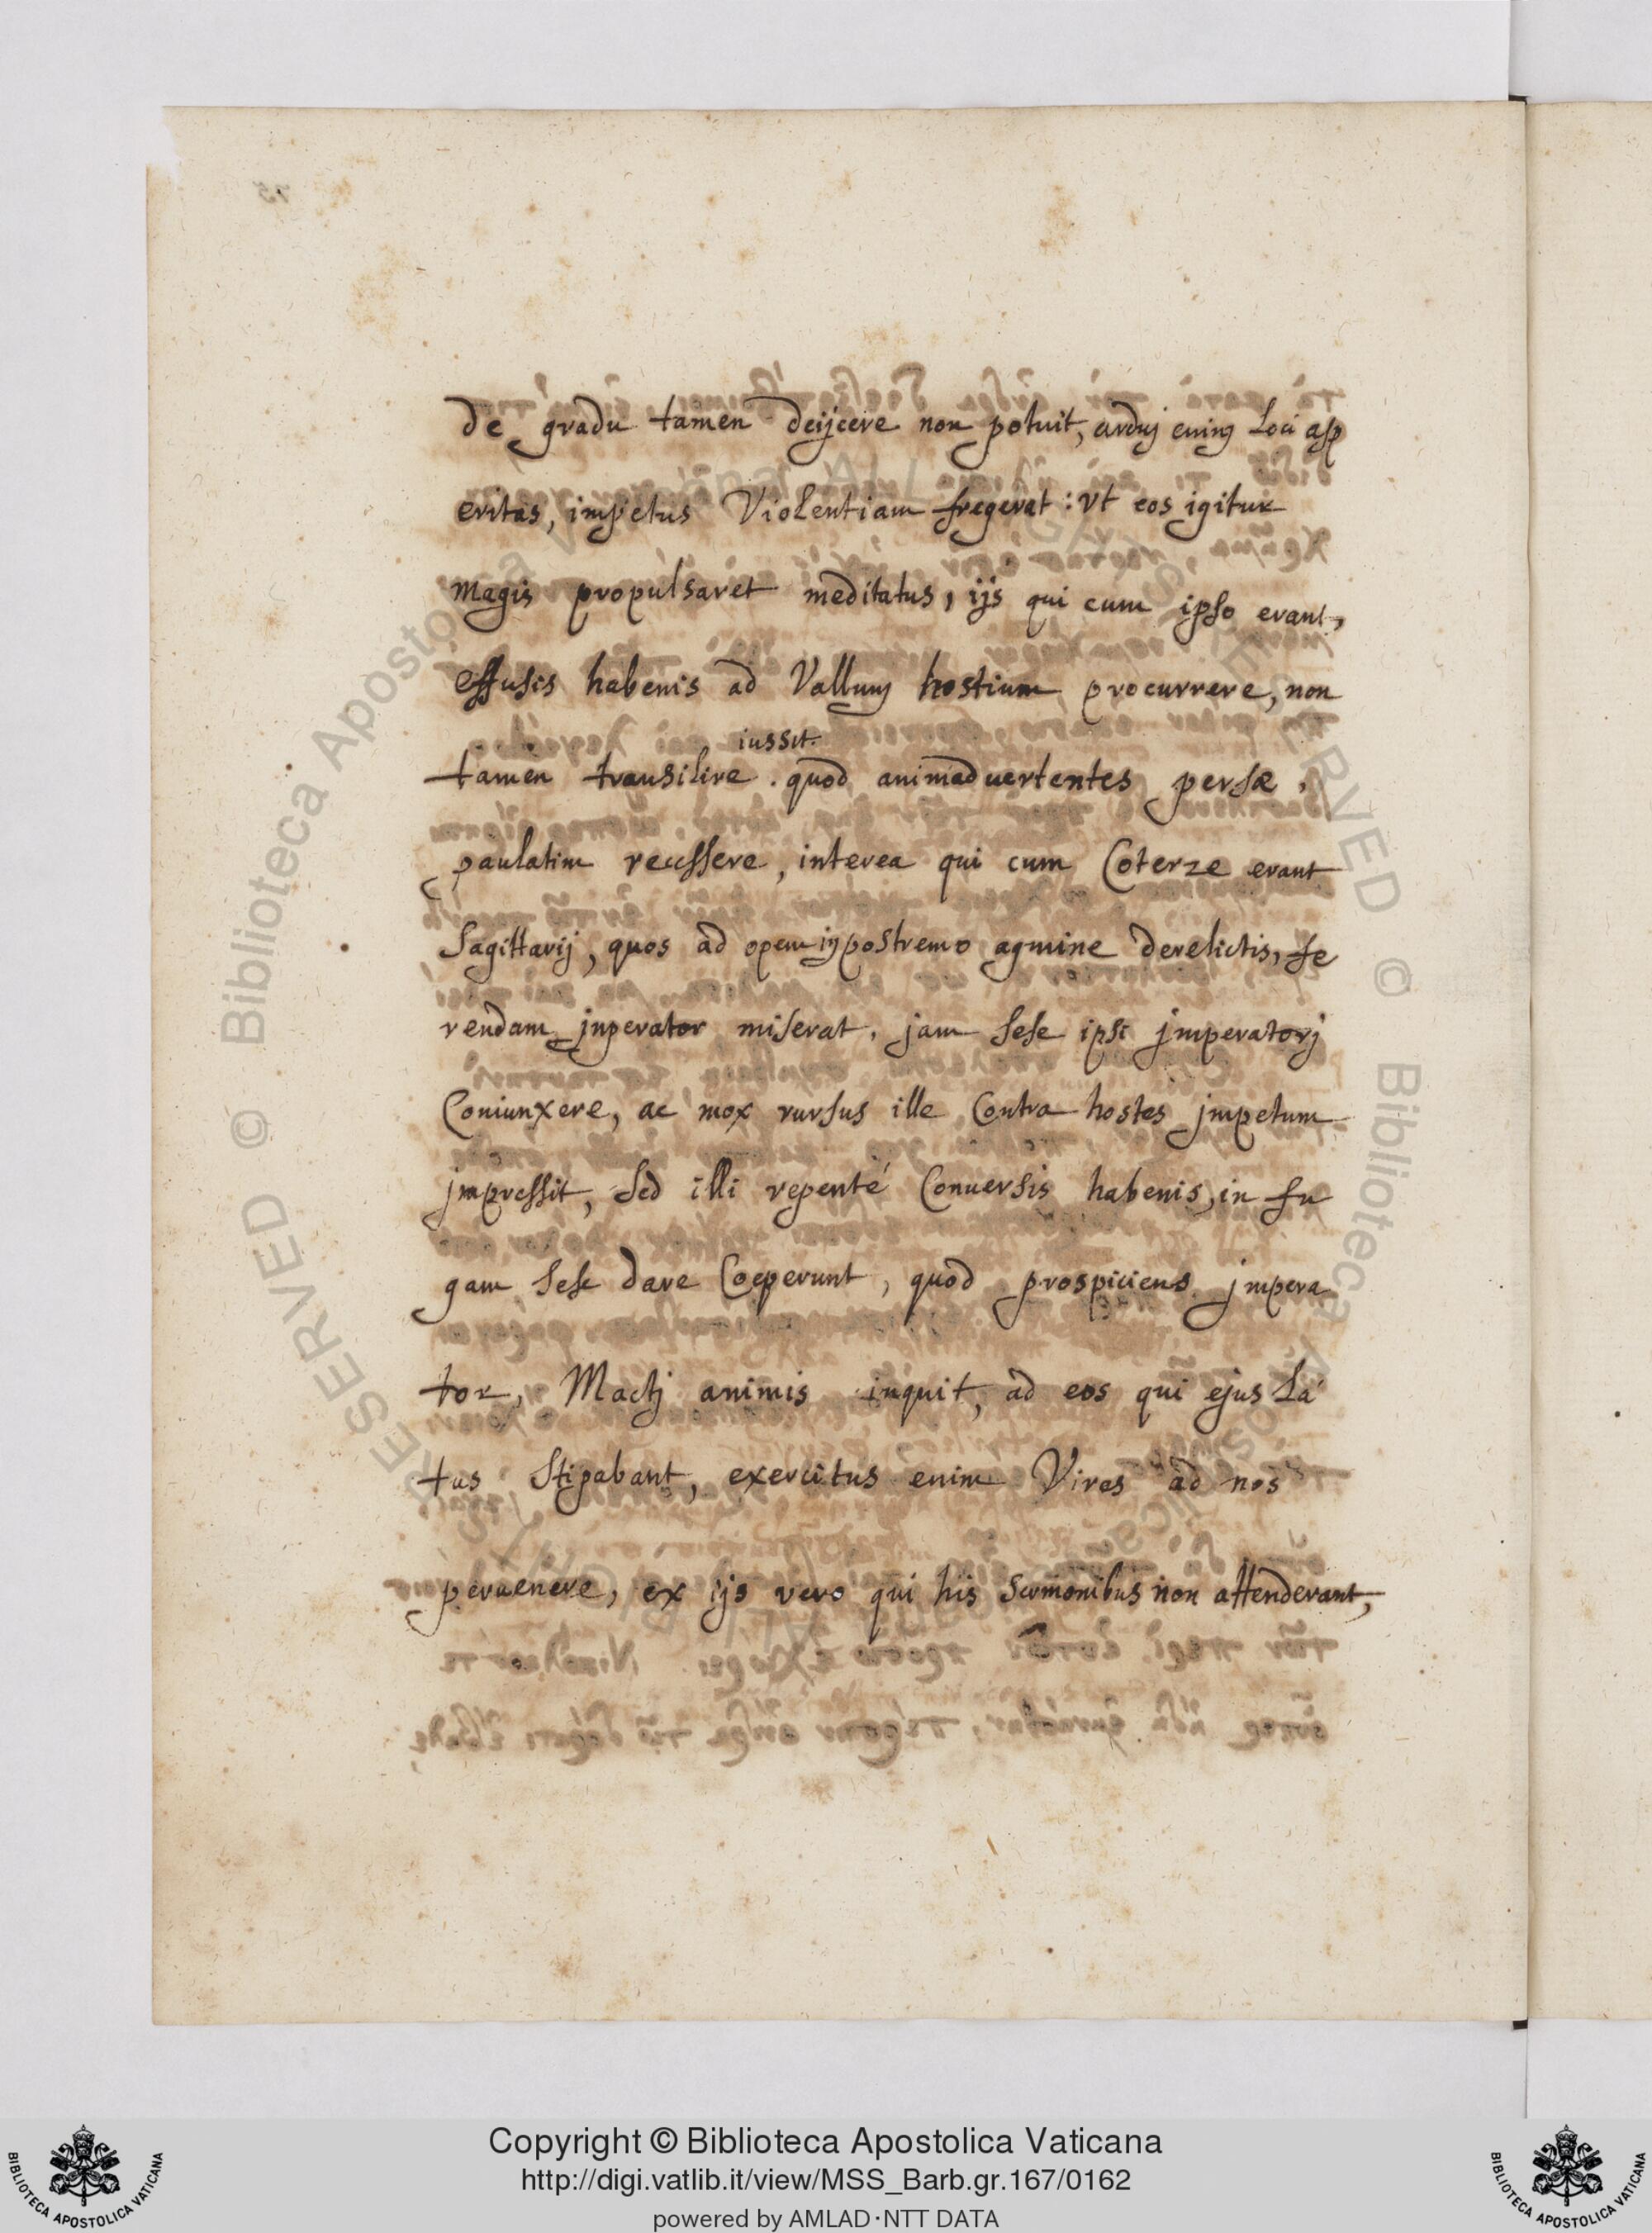 de gradu tamen deijcere non potuit, arduj enim Loci asp
eritas, impetus Violentiam fregerat : Vt eos igitur
magis propulsaret meditatus, ijs qui cum ipso erant,
effusis habenis ad Vallum hostium procurrere, non
iussit.
tamen transilire . quod animaduertentes persæ,
paulatim recessere, interea qui cum Coterze erant
Sagittarij, quos ad opem ijs postremo agmine derelictis, fe
rendam jnperator miserat, jam sese ipsi jmperatorj
Coniunxere, ac mox rursus ille Contra hostes jmpetum
jmpressit, sed illi repenté Conuersis habenis, in fu
gam sese dare Coeperunt, quod prospiciens jmpera
tor, Mactj animis inquit, ad eos qui ejus La
tus Stipabant, exercitus enim Vires ad nos
peruenere, ex ijs vero qui his sermonibus non attenderant,
Copyright © Biblioteca Apostolica Vaticana
http://digi.vatlib.it/view/MSS_Barb.gr.167/0162
powered by AMLAD·NTT DATA
BIBLIOTECA APOSTOLICA VATICANA
BIBLIOTECA APOSTOLICA VATICANA